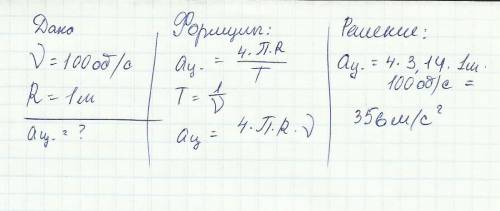 Дано
ν = 100 об/с
R = 1 м
aц. = ?
Формулы:
aц. = 4.П.R / T
T = 1 / ν
aц = 4.П.R.ν
Решение:
aц. = 4.3,14.1м.
100 об/с =
356 м/с²